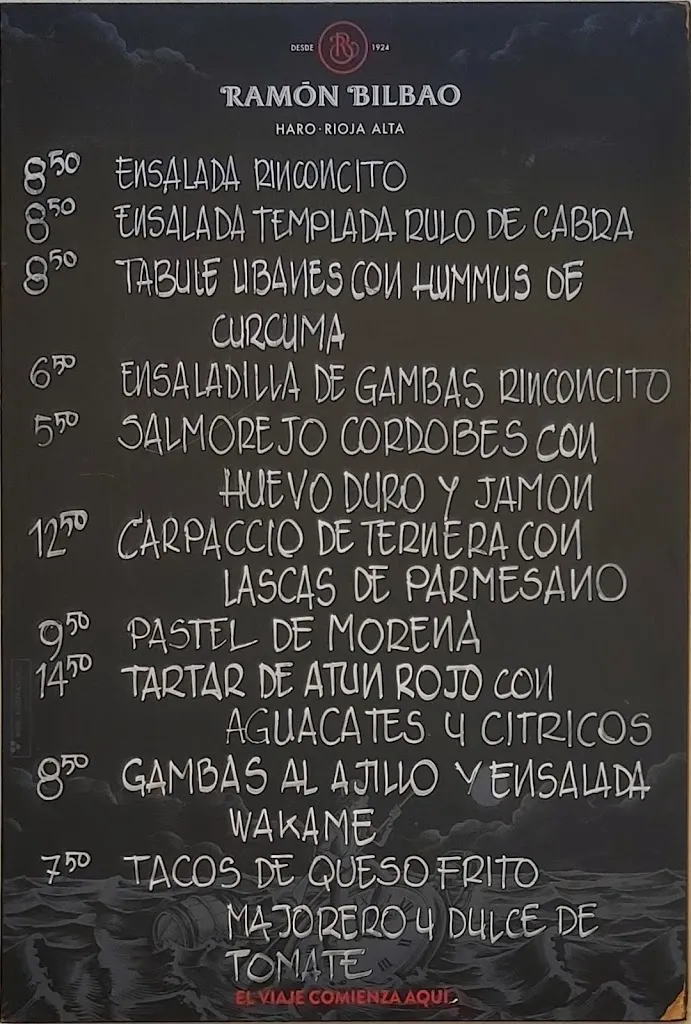 DESDE RB 1924
RAMÓN BILBAO
HARO·RIOJA ALTA
8,50 ENSALADA RINCONCITO
8,50 ENSALADA TEMPLADA RULO DE CABRA
8,50 TABULE LIBANES CON HUMMUS DE
CURCUMA
6,50 ENSALADILLA DE GAMBAS RINCONCITO
5,50 SALMOREJO CORDOBES CON
HUEVO DURO Y JAMON
12,50 CARPACCIO DE TERNERA CON
LASCAS DE PARMESANO
9,50 PASTEL DE MORENA
14,50 TARTAR DE ATUN ROJO CON
AGUACATES Y CITRICOS
8,50 GAMBAS AL AJILLO Y ENSALADA
WAKAME
7,50 TACOS DE QUESO FRITO
MAJORERO Y DULCE DE
TOMATE
EL VIAJE COMIENZA AQUÍ